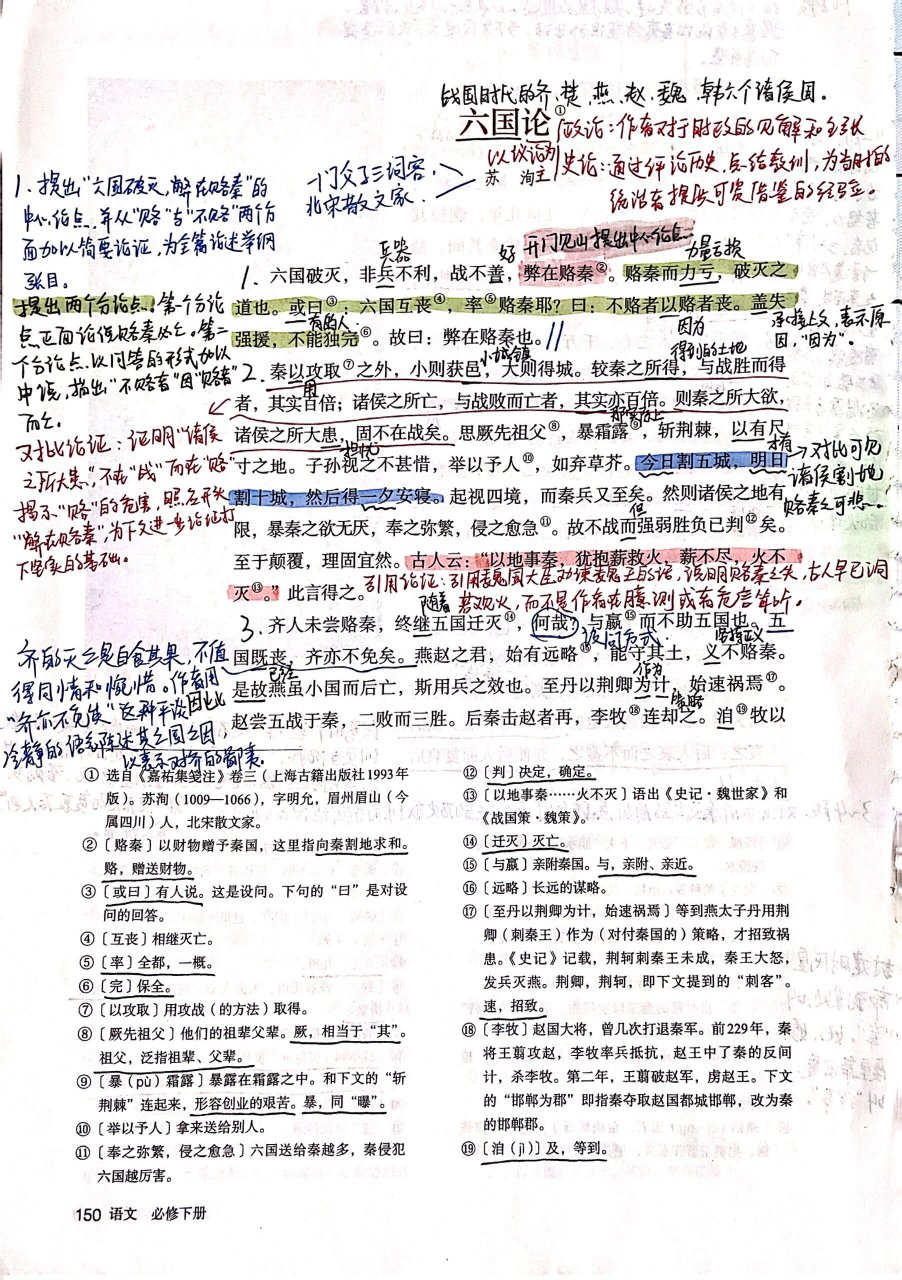 战国时代的齐、楚、燕、赵、魏、韩六个诸侯国。
六国论①
苏 洵
政论：作者对于时政的见解和主张
以议论为主
史论：通过评论历史，总结教训，为当时的
统治者提供可资借鉴的经验。
一门父子三词客，
北宋散文家．
1、提出“六国破灭，弊在赂秦”的
中心论点，并从“赂”与“不赂”两个方
面加以简要论证，为全篇论述举纲
张目。
提出两个分论点：第一个分论
点正面论说赂秦必亡。第二
个分论点以问答的形式加以
申说，指出“不赂者”因“赂者”
而亡。
对比论证：证明“诸侯
之所大患”，不在“战”而在“赂”
揭示“赂”的危害，照应开头
“弊在赂秦”，为下文进一步论证打
下坚实的基础。
兵器
好
开门见山提出中心论点
力量亏损
1.六国破灭，非兵不利，战不善，弊在赂秦②。赂秦而力亏，破灭之
道也。或曰③：六国互丧④，率⑤赂秦耶？曰：不赂者以赂者丧。盖失
有的人
因为
承接上文，表示原
因，“因为”。
强援，不能独完⑥。故曰：弊在赂秦也。//
小城镇
得到的土地
2.秦以攻取⑦之外，小则获邑，大则得城。较秦之所得，与战胜而得
用
者，其实百倍；诸侯之所亡，与战败而亡者，其实亦百倍。则秦之所大欲，
诸侯之所大患，固不在战矣。思厥先祖父⑧，暴霜露⑨，斩荆棘，以有尺
寸之地。子孙视之不甚惜，举以予人⑩，如弃草芥。今日割五城，明日
对比可见
诸侯割地
赂秦之可悲。
割十城，然后得一夕安寝。起视四境，而秦兵又至矣。然则诸侯之地有
限，暴秦之欲无厌，奉之弥繁，侵之愈急⑪。故不战而强弱胜负已判⑫矣。
但
至于颠覆，理固宜然。古人云：“以地事秦，犹抱薪救火，薪不尽，火不
灭⑬。”此言得之。
引用论证：引用魏国大臣劝谏魏王的话，说明赂秦之失，古人早已洞
若观火，而不是作者在臆测或者危言耸听。
随着
3.齐人未尝赂秦，终继五国迁灭⑭，何哉？与嬴⑮而不助五国也。五
反问句式
坚持正义
国既丧，齐亦不免矣。燕赵之君，始有远略⑯，能守其土，义不赂秦。
已经
作为
是故燕虽小国而后亡，斯用兵之效也。至丹以荆卿为计，始速祸焉⑰。
因此
策略
赵尝五战于秦，二败而三胜。后秦击赵者再，李牧⑱连却之。洎⑲牧以
齐的灭亡是自食其果，不值
得同情和惋惜。作者用
“齐亦不免矣”这种平淡
冷静的语气陈述其亡国之因，
以表示对齐的鄙弃．
① 选自《嘉祐集笺注》卷三（上海古籍出版社1993年
版）。苏洵（1009—1066），字明允，眉州眉山（今
属四川）人，北宋散文家。
② 〔赂秦〕以财物赠予秦国，这里指向秦割地求和。
赂，赠送财物。
③ 〔或曰〕有人说。这是设问。下句的“曰”是对设
问的回答。
④ 〔互丧〕相继灭亡。
⑤ 〔率〕全都，一概。
⑥ 〔完〕保全。
⑦ 〔以攻取〕用攻战（的方法）取得。
⑧ 〔厥先祖父〕他们的祖辈父辈。厥，相当于“其”。
祖父，泛指祖辈、父辈。
⑨ 〔暴（pù）霜露〕暴露在霜露之中。和下文的“斩
荆棘”连起来，形容创业的艰苦。暴，同“曝”。
⑩ 〔举以予人〕拿来送给别人。
⑪ 〔奉之弥繁，侵之愈急〕六国送给秦越多，秦侵犯
六国越厉害。
⑫ 〔判〕决定，确定。
⑬ 〔以地事秦……火不灭〕语出《史记·魏世家》和
《战国策·魏策》。
⑭ 〔迁灭〕灭亡。
⑮ 〔与嬴〕亲附秦国。与，亲附、亲近。
⑯ 〔远略〕长远的谋略。
⑰ 〔至丹以荆卿为计，始速祸焉〕等到燕太子丹用荆
卿（刺秦王）作为（对付秦国的）策略，才招致祸
患。《史记》记载，荆轲刺秦王未成，秦王大怒，
发兵灭燕。荆卿，荆轲，即下文提到的“刺客”。
速，招致。
⑱ 〔李牧〕赵国大将，曾几次打退秦军。前229年，秦
将王翦攻赵，李牧率兵抵抗，赵王中了秦的反间
计，杀李牧。第二年，王翦破赵军，虏赵王。下文
的“邯郸为郡”即指秦夺取赵国都城邯郸，改为秦
的邯郸郡。
⑲ 〔洎（jì）〕及，等到。
150 语文 必修下册